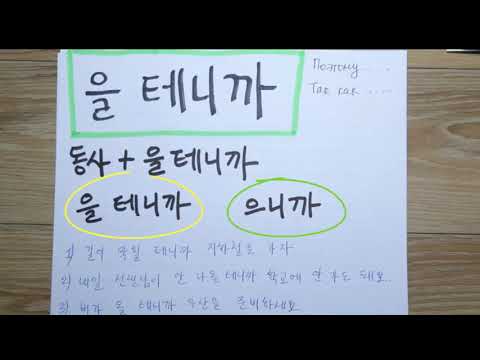 을 테니까
Потому.....
Так как.....
동사 + 을테니까
을 테니까
으니까
1) 길이 막힐 테니까 지하철로 가자
2) 내일 선생님이 안 나올테니까 학교에 안 가도 돼요.
3) 비가 올 테니까 우산을 준비하세요